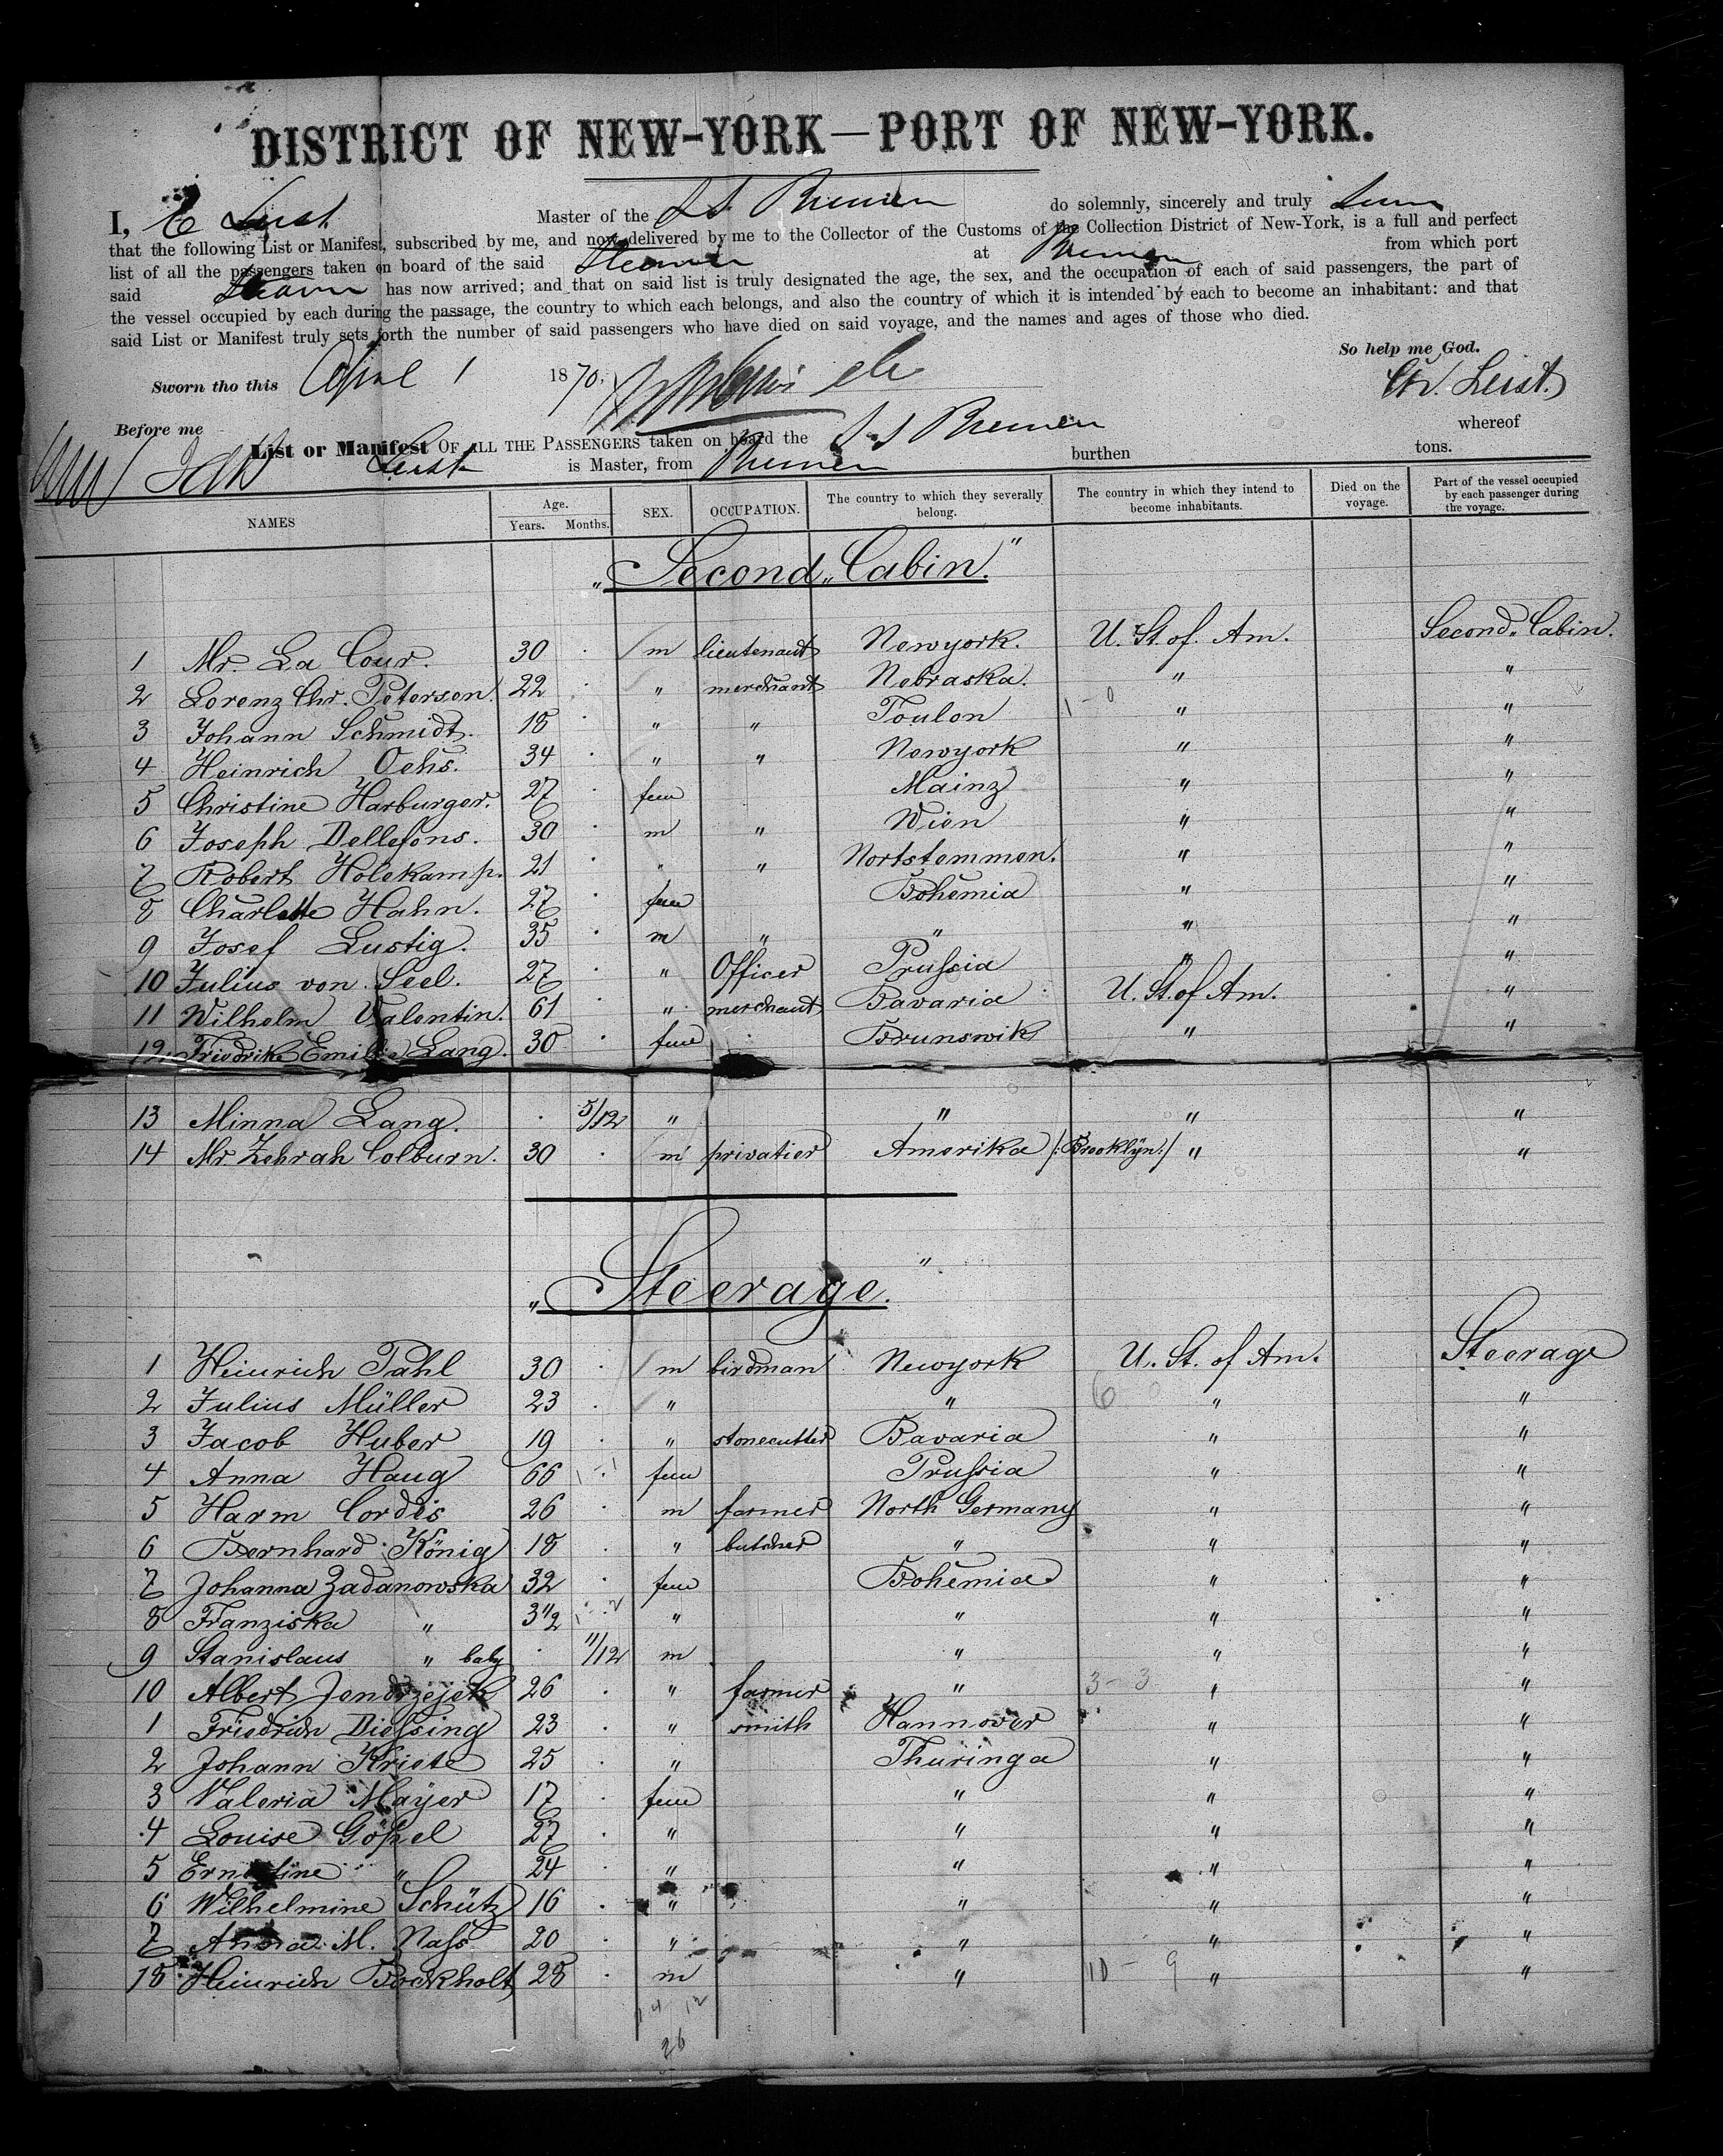 DISTRICT OF NEW-YORK—PORT OF NEW-YORK.
I, E Leist Master of the S S. Bremen do solemnly, sincerely and truly
that the following List or Manifest, subscribed by me, and now delivered by me to the Collector of the Customs of the Collection District of New-York, is a full and perfect
list of all the passengers taken on board of the said Steamer at Bremen from which port
said Steamer has now arrived; and that on said list is truly designated the age, the sex, and the occupation of each of said passengers, the part of
the vessel occupied by each during the passage, the country to which each belongs, and also the country of which it is intended by each to become an inhabitant: and that
said List or Manifest truly sets forth the number of said passengers who have died on said voyage, and the names and ages of those who died.
So help me God.
Sworn tho this April 1 1870. Leist.
Before me
List or Manifest OF ALL THE PASSENGERS taken on board the S. S Bremen whereof
Leist is Master, from Bremen burthen tons.
NAMES Age. Years. Months. SEX. OCCUPATION. The country to which they severally belong. The country in which they intend to become inhabitants. Died on the voyage. Part of the vessel occupied by each passenger during the voyage.
„Second„Cabin."
1 Mr. La Cour. 30 · m lieutenant Newyork. U. St. of. Am. Second„Cabin.
2 Lorenz Chr. Petersen. 22 · " merchant Nebraska. " "
3 Johann Schmidt. 18 · " " Toulon 1-0 " "
4 Heinrich Oehs. 34 · " " Newyork " "
5 Christine Harburger. 27 · fem Mainz " "
6 Joseph Dellefons. 30 · m " Wien " "
7 Robert Holekamp. 21 · " " Nortstemmen. " "
8 Charlotte Hahn. 27 · fem Bohemia " "
9 Josef Lustig. 35 · m " " " "
10 Julius von Seel. 27 · " Officer Prussia " "
11 Wilhelm Valentin. 61 · " merchant Bavaria U. St. of Am. "
12 Friedrike Emilie Lang. 30 · fem Brunswik " "
13 Minna Lang. · 5/12 " " " "
14 Mr. Zehrah Colburn. 30 · m privatier Amerika /:Brooklÿn:/ " "
„Steerage."
1 Heinrich Pahl 30 · m birdman Newyork U. St. of Am. Steerage
2 Julius Müller 23 · " " 6 " "
3 Jacob Huber 19 · " stonecutter Bavaria " "
4 Anna Haug 66 1-1 fem Prussia " "
5 Harm Cordes 26 · m farmer North Germany " "
6 Bernhard König 18 · " butcher " " "
7 Johanna Zadanowska 32 · fem Bohemia " "
8 Franziska " 3 1/2 " " " "
9 Stanislaus " baby · 11/12 m " " "
10 Albert Jendrzejek 26 · " farmer " 3-3 " "
1 Friedrich Diessing 23 · " smith Hannover " "
2 Johann Kriete 25 · " Thuringa " "
3 Valeria Mayer 17 · fem " " "
4 Louise Göpel 27 · " " " "
5 Ernestine " 24 · " " " "
6 Wilhelmine Schütz 16 · " " " "
7 Anna M. Nass 20 · " " " "
18 Heinrich Bockholt 28 · m " 10-9 " "
14 12
26